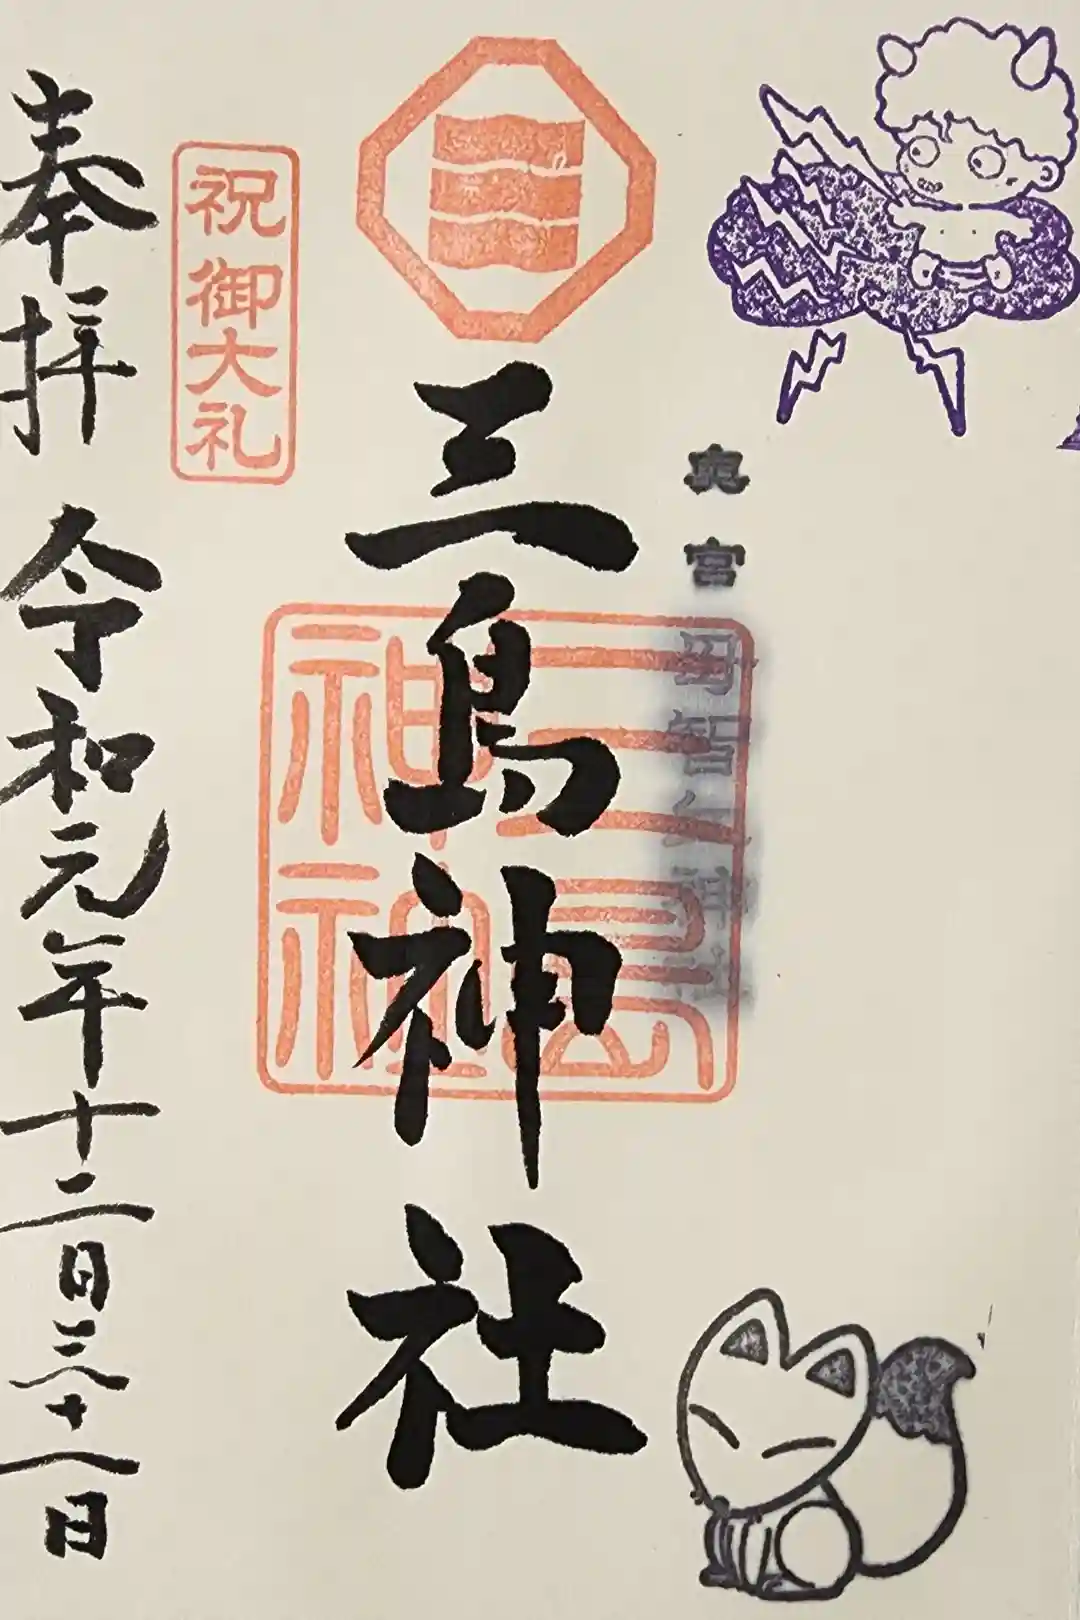 奥宮
三島神社
三島神社
祝御大礼
奉拝
令和元年十二月三十一日